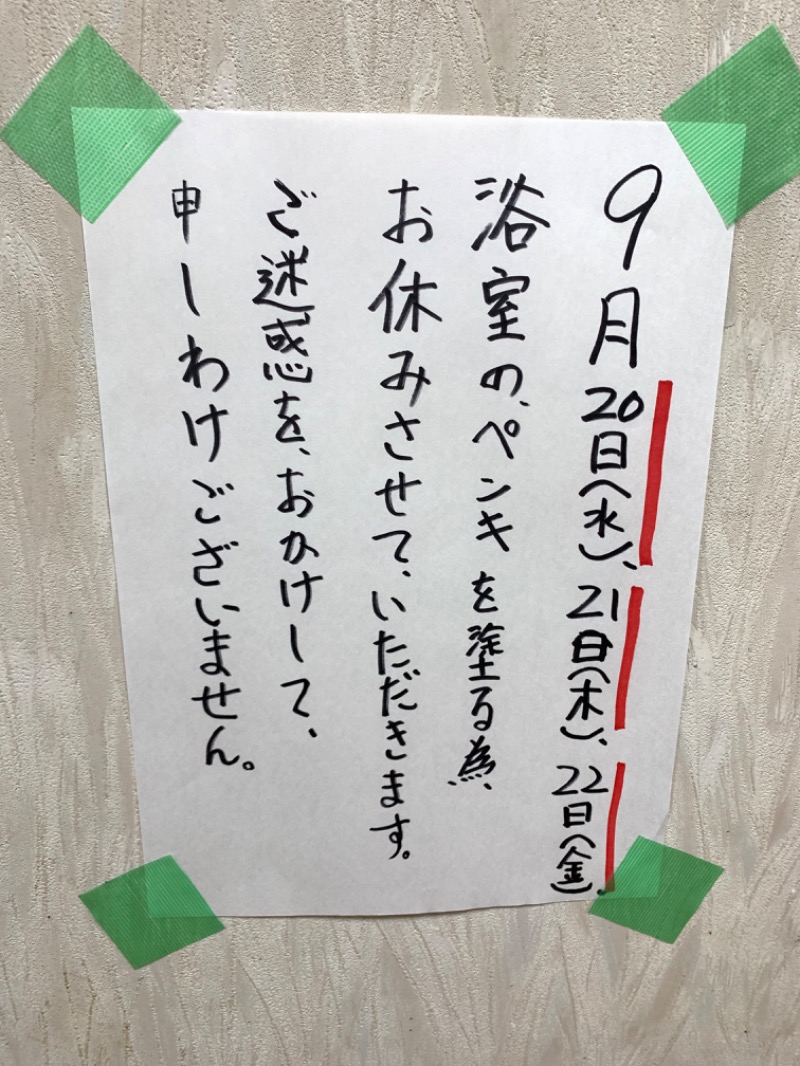 9月20日(水)、21日(木)、22日(金)、
浴室の、ペンキを塗る為、
お休みさせて、いただきます。
ご迷惑を、おかけして、
申しわけございません。